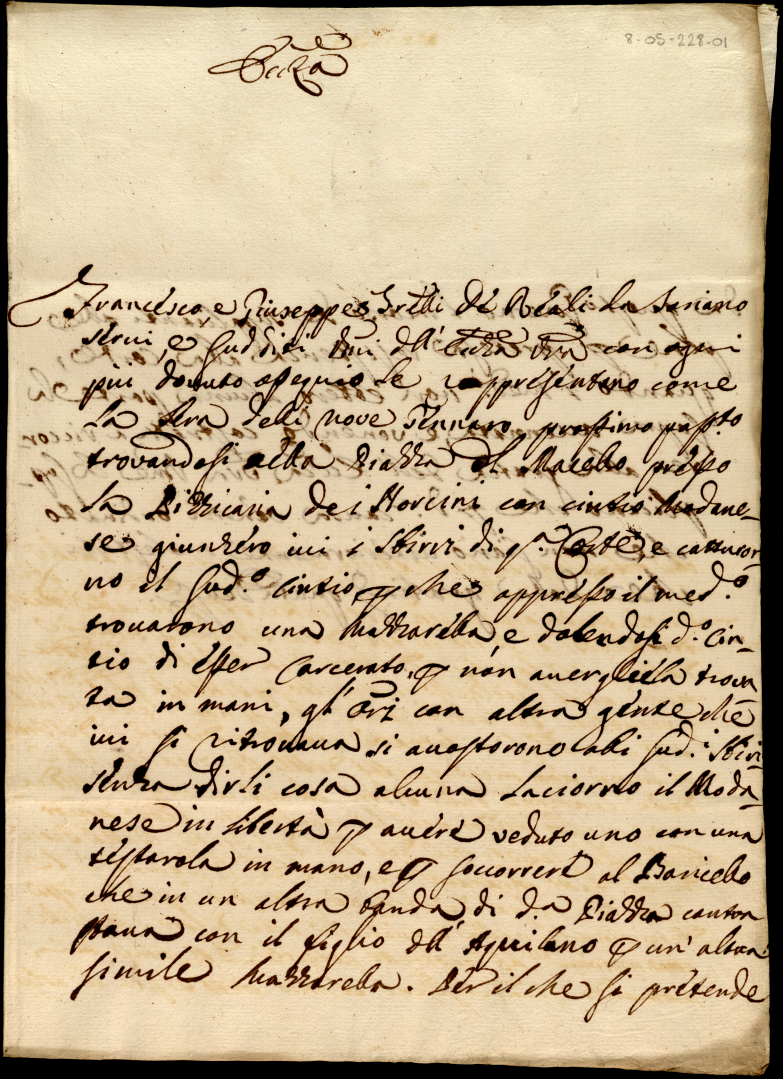 8-05-228-01
Ecc.za
Francesco, e Giuseppe fr̃elli de Reali da Soriano
servi, e sudditi dñi dell' Ecc.za V̄ra con ogni
più dovuto ossequio le rappresentano come
la sera delli nove Gennaro prossimo pass.to
trovandosi alla Piazza del Macello presso
la Pizzicaria de i Norcini con Cintio Modane-
se giunsero ivi i sbirri di q.a Corte, e cattutor-
no il sud.o Cintio p che appresso il med.o
trovarono una mazzarella, e dolendosi d.o Cin-
tio di esser carcerato, p non avergliela trova
ta in mani, gl' Orī con altra gente che
ivi si ritrovava si accostorono alli sud.i sbirri
senza dirli cosa alcuna laciorno il Moda-
nese in libertà p avere veduto uno con una
in mano, e p soccorrere al Baricello
che in un altra banda di d.a Piazza contra
stava con il figlio dell' Aquilano p un' altra
simile mazzarella. Per il che si pretende